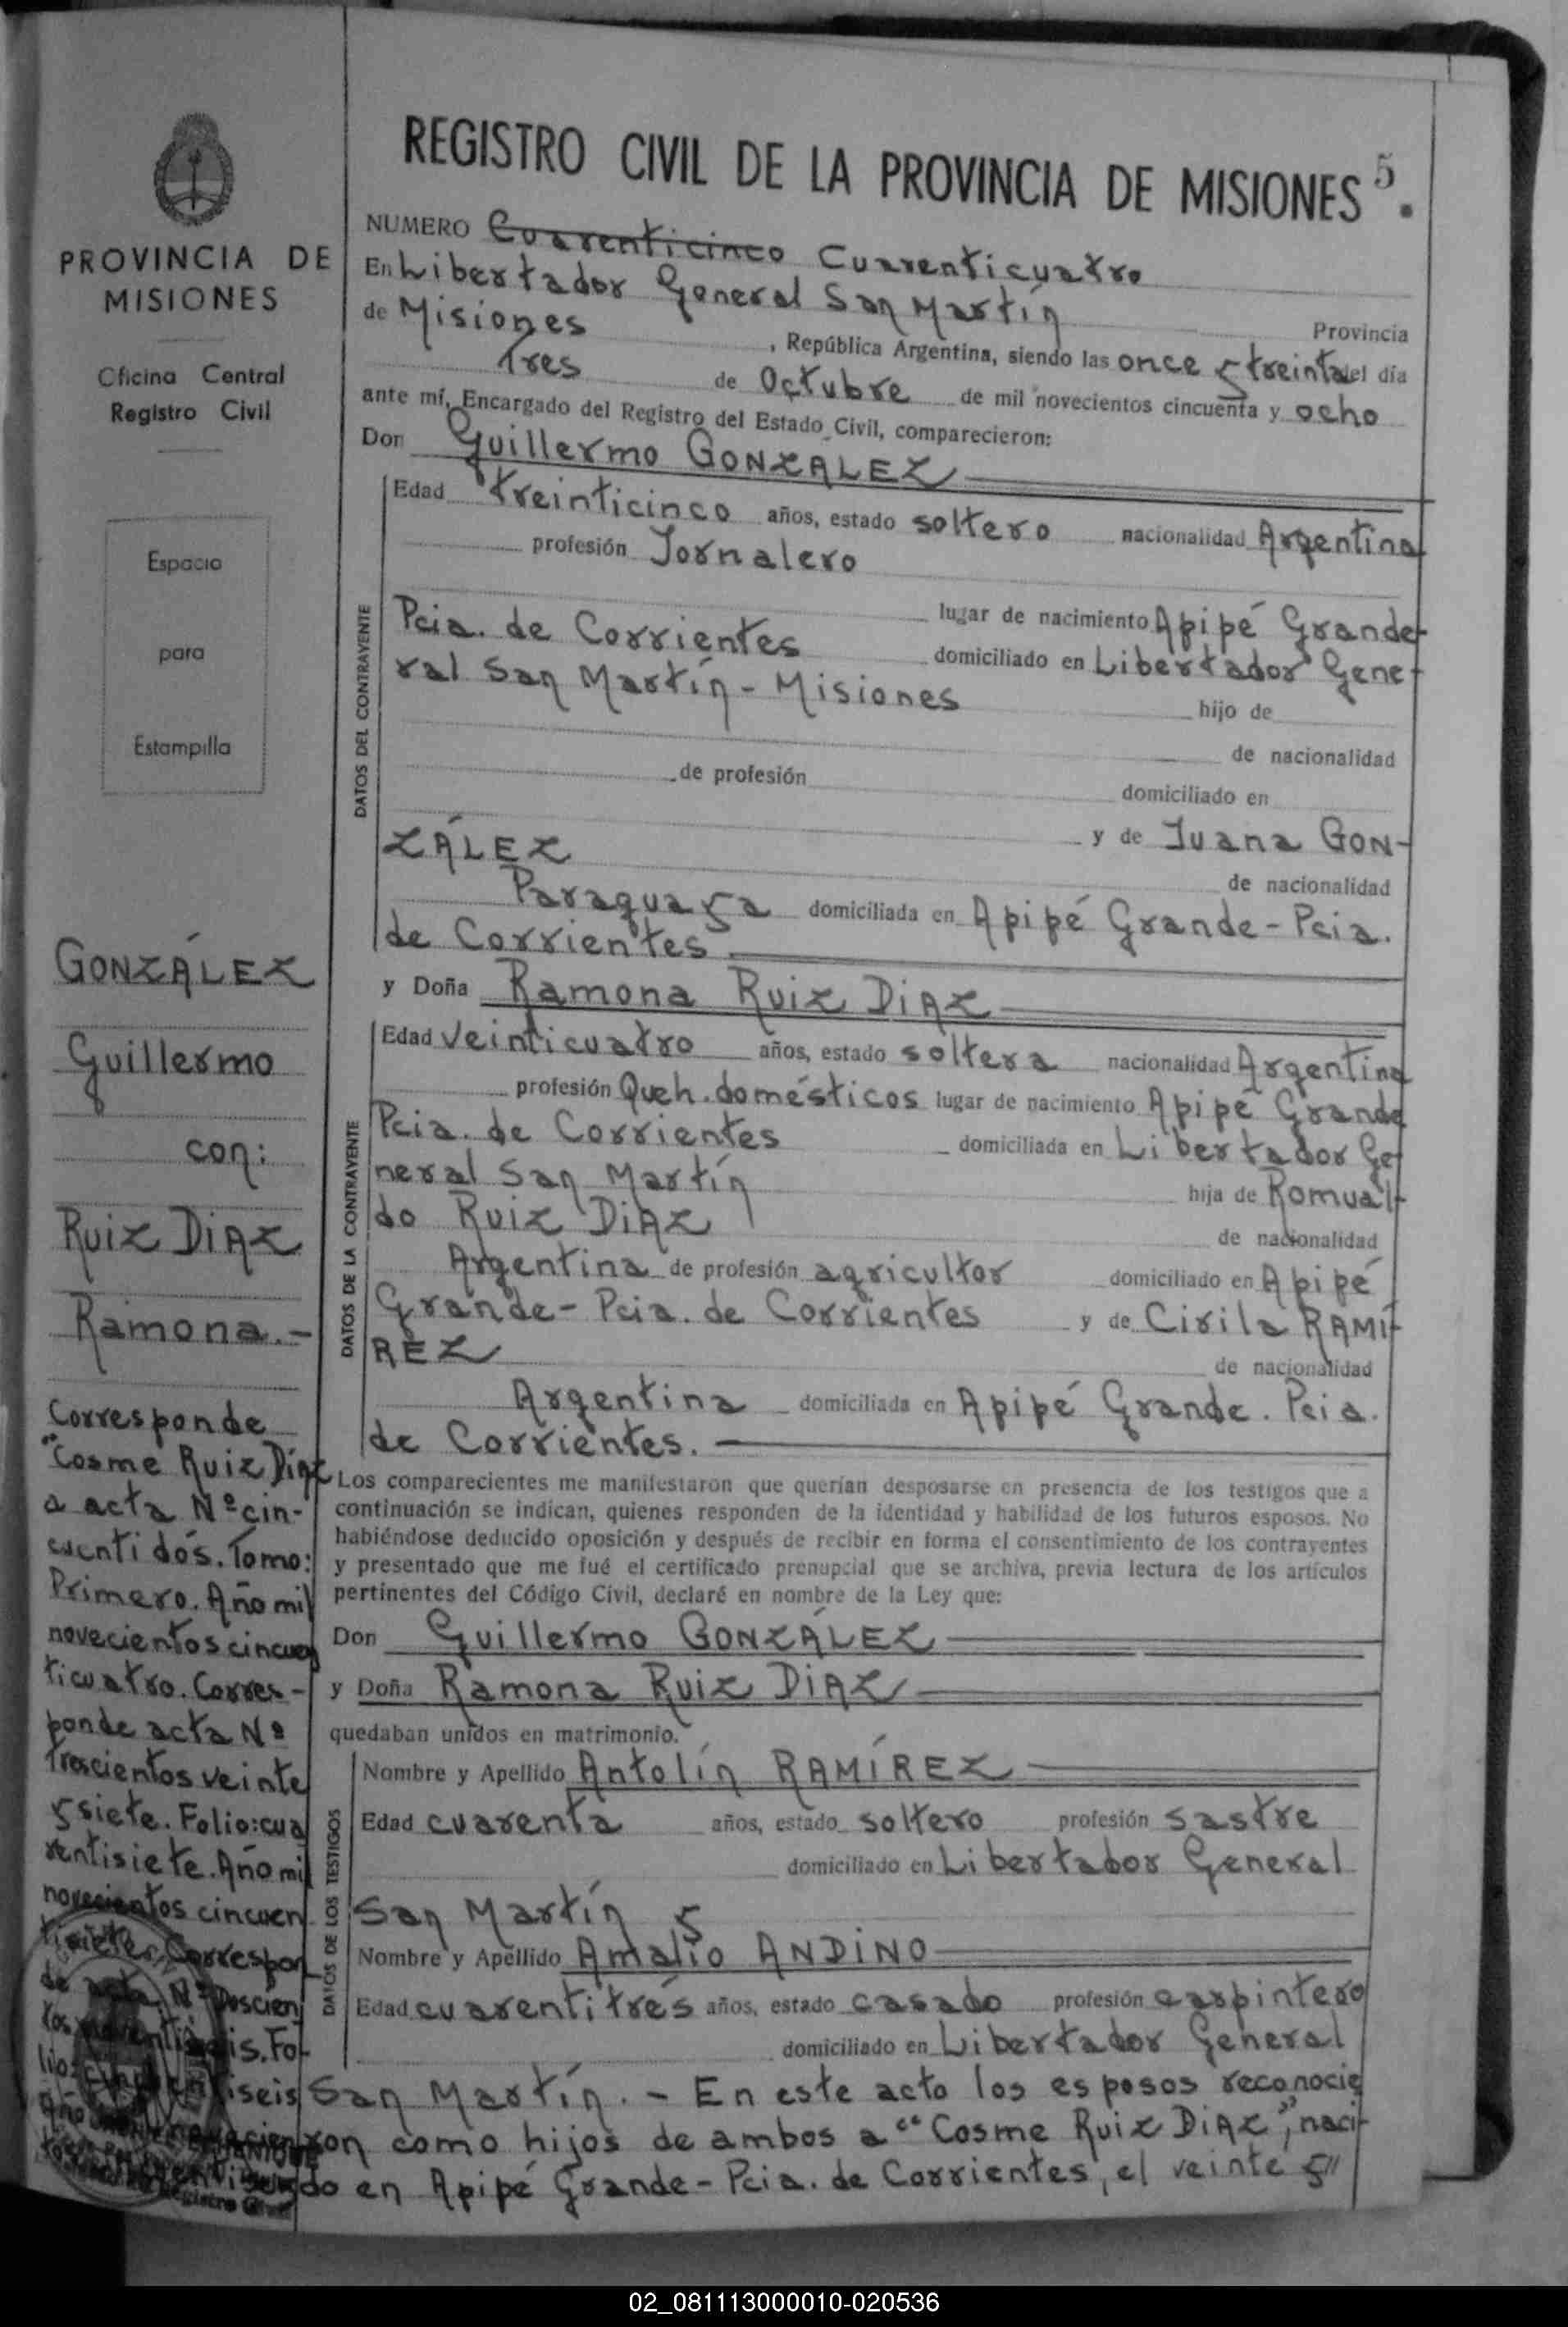 PROVINCIA DE
MISIONES
Oficina Central
Registro Civil
Espacio
para
Estampilla
GONZÁLEZ
Guillermo
con:
Ruiz DIAZ
Ramona.-
Corresponde
"Cosme Ruiz Díaz
a acta Nº cin-
cuenti dós. Tomo:
Primero. Año mil
novecientos cincuen
ticuatro. Corres-
ponde acta Nº
trescientos veinte
y siete. Folio: cua
rentisiete. Año mil
novecientos cincuen
tisiete. Correspon
de acta Nº Doscien
tos
Fo-
lio:
tiseis
Año
REGISTRO CIVIL DE LA PROVINCIA DE MISIONES 5.
NUMERO Cuarenticinco Cuarenticuatro
En Libertador General San Martín Provincia
de Misiones, República Argentina, siendo las once y treinta del día
Tres de Octubre de mil novecientos cincuenta y ocho
ante mí, Encargado del Registro del Estado Civil, comparecieron:
Don Guillermo GONZÁLEZ
DATOS DEL CONTRAYENTE
Edad treinticinco años, estado soltero nacionalidad Argentina
profesión Jornalero
lugar de nacimiento Apipé Grande-
Pcia. de Corrientes domiciliado en Libertador Gene-
ral San Martín - Misiones hijo de
de nacionalidad
de profesión domiciliado en
y de Juana GON-
ZÁLEZ de nacionalidad
Paraguaya domiciliada en Apipé Grande - Pcia.
de Corrientes
y Doña Ramona Ruiz DIAZ
DATOS DE LA CONTRAYENTE
Edad veinticuatro años, estado soltera nacionalidad Argentina
profesión Queh. domésticos lugar de nacimiento Apipé Grande
Pcia. de Corrientes domiciliada en Libertador Ge-
neral San Martín hija de Romual-
do Ruiz DIAZ de nacionalidad
Argentina de profesión agricultor domiciliado en Apipé
Grande - Pcia. de Corrientes y de Cirila RAMÍ-
REZ de nacionalidad
Argentina domiciliada en Apipé Grande. Pcia.
de Corrientes.
Los comparecientes me manifestaron que querían desposarse en presencia de los testigos que a
continuación se indican, quienes responden de la identidad y habilidad de los futuros esposos. No
habiéndose deducido oposición y después de recibir en forma el consentimiento de los contrayentes
y presentado que me fué el certificado prenupcial que se archiva, previa lectura de los artículos
pertinentes del Código Civil, declaré en nombre de la Ley que:
Don Guillermo GONZÁLEZ
y Doña Ramona Ruiz DIAZ
quedaban unidos en matrimonio.
DATOS DE LOS TESTIGOS
Nombre y Apellido Antolín RAMÍREZ
Edad cuarenta años, estado soltero profesión sastre
domiciliado en Libertador General
San Martín y
Nombre y Apellido Amalio ANDINO
Edad cuarentitrés años, estado casado profesión carpintero
domiciliado en Libertador General
San Martín. - En este acto los esposos reconocie
ron como hijos de ambos a "Cosme Ruiz DIAZ", naci-
do en Apipé Grande - Pcia. de Corrientes, el veinte y//
02_081113000010-020536